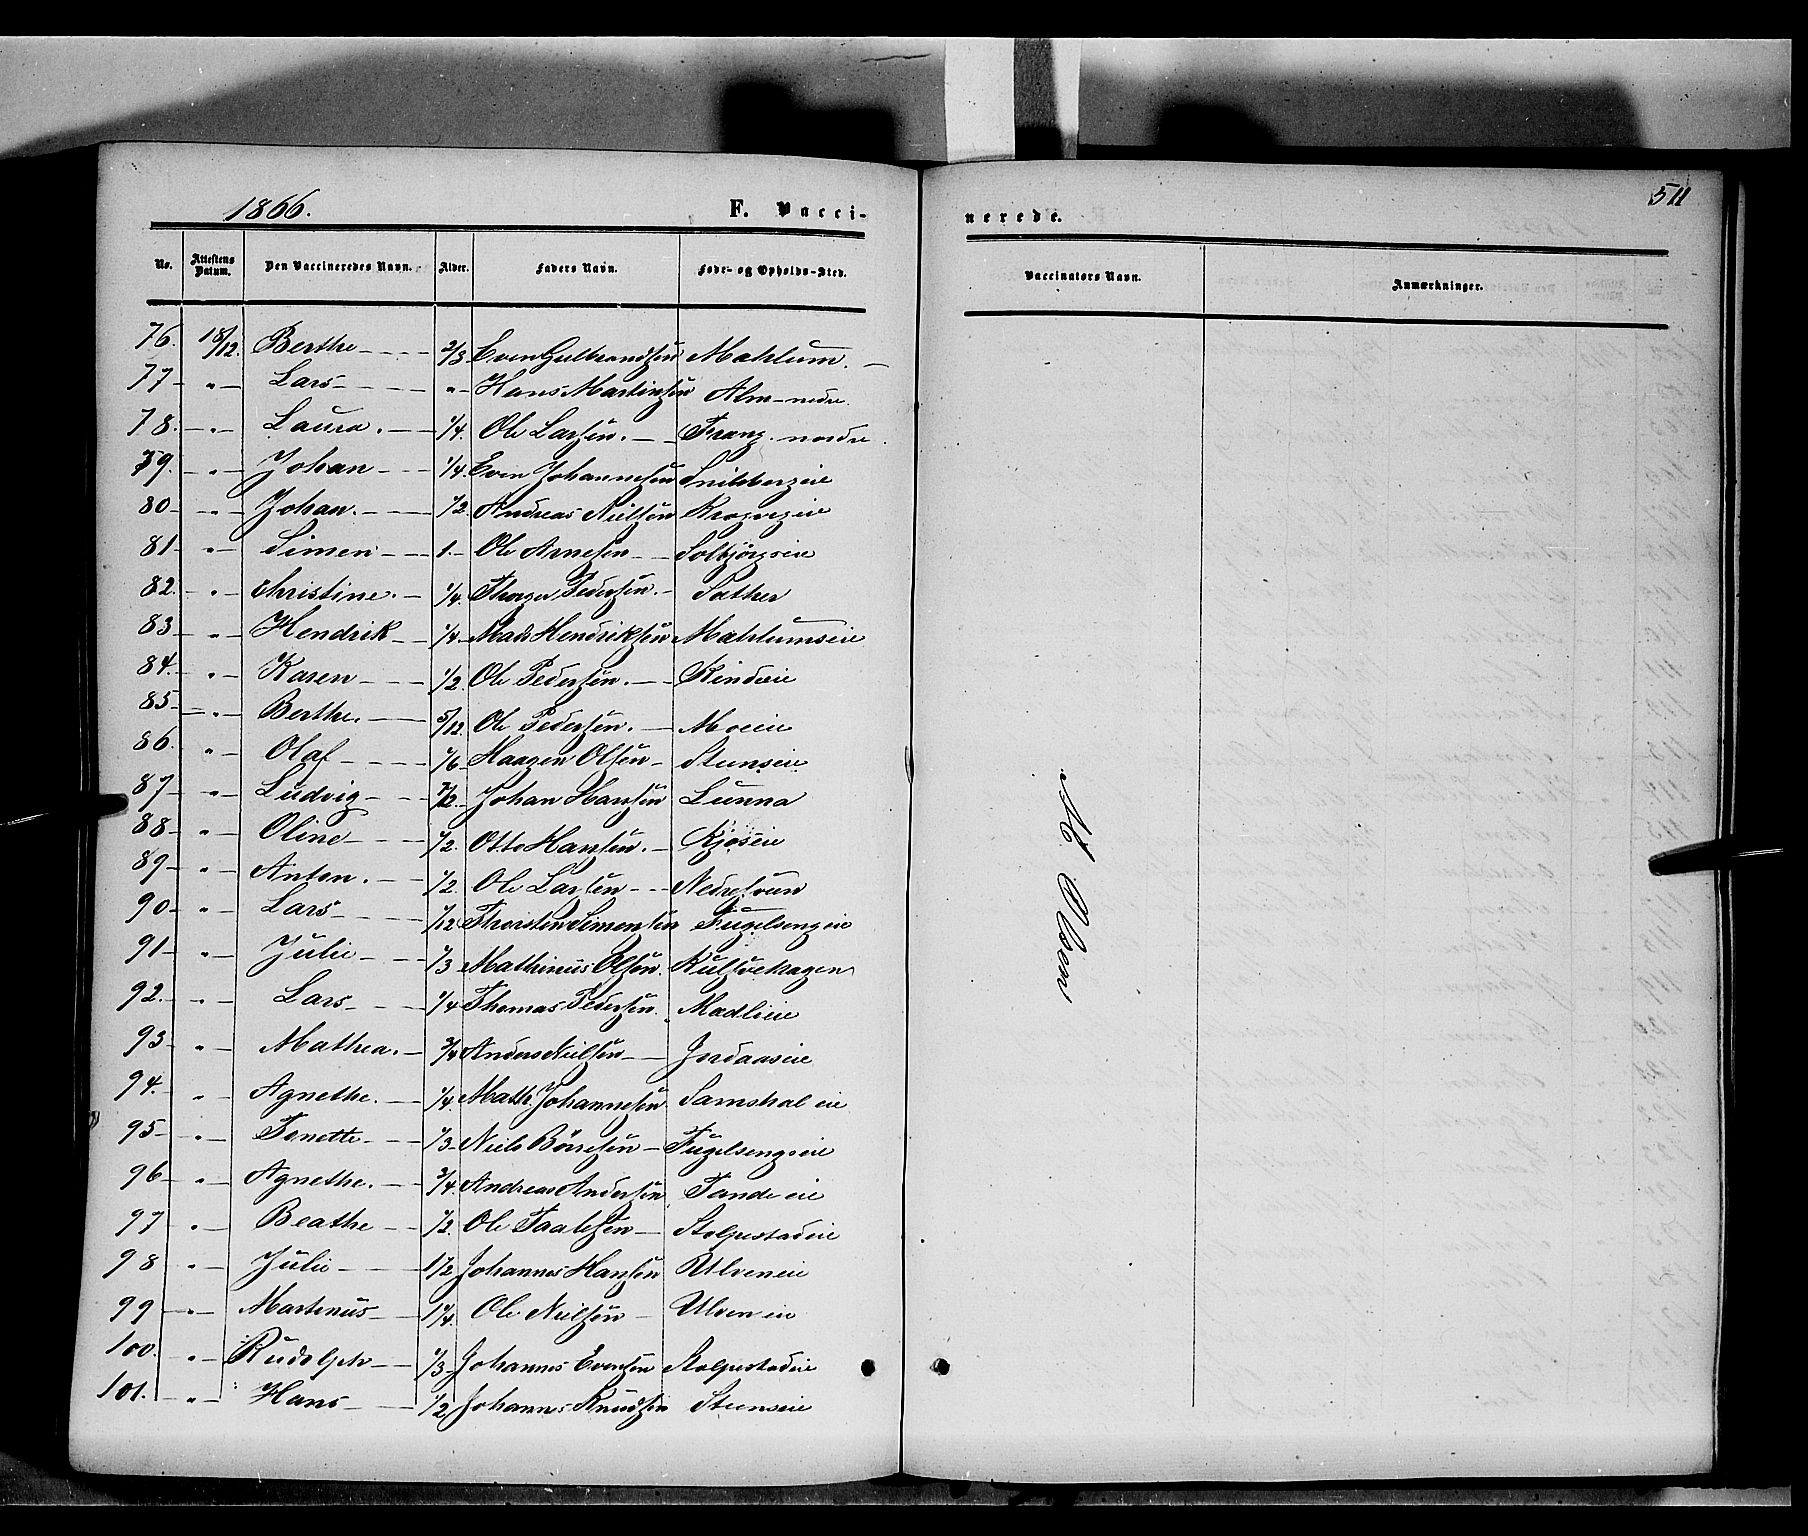 1866. F. Vacci-
nerede. 511
No. Attestens Datum. Den Vaccineredes Navn. Alder. Faders Navn. Føde- og Opholds-Sted.
Vaccinators Navn. Anmærkninger.
76. 18/12. Berthe 2/3 Even Gulbrandsen Mæhlum.
77 " Lars " Hans Martinsen Alm nedre.
78. " Laura. 1/4. Ole Larsen. Frang nordre.
79. " Johan 1/4. Even Johannesen
80 " Johan. 1/2. Andreas Nielsen
81 " Simen 1. Ole Arnesen Solbjörgseie
82. " Christine. 1/4. Thorger Pedersen. Sæther
83 " Hendrik 1/4. Mads Hendriksen Mæhlumseie
84. " Karen 1/2. Ole Pedersen. Rindeie
85 " Berthe. 5/12. Ole Pedersen. Moeie
86. " Olaf 1/6 Haagen Olsen Stenseie
87 " Ludvig 7/12. Johan Hansen Lunna
88 " Oline 1/2. Otto Hansen. Kjoseie
89 " Anton. 1/2 Ole Larsen
90 " Lars 1/12 Thorsten Simensen Fuglsengeie
91 " Julie 1/3 Mathinus Olsen.
92. " Lars 1/4 Thomas Pedersen. Madlieie
93 " Mathea. 3/4 Anders Nielsen Jordaaseie
94. " Agnethe. 1/4. Math. Johannesen Samshal eie
95 " Tonette 1/3 Niels Börresen Fuglsengseie
96 " Agnethe. 3/4. Andreas Andersen Tande eie
97 " Beathe 1/2. Ole Taalesen Stolpestadeie
98 " Julie 1 1/2 Johannes Hansen Ulveneie
99 " Martinus 1 1/4. Ole Nielsen Ulven eie
100. " Rudolph 1/3 Johannes Evensen Stolpestadeie
101. " Hans 1/2 Johannes Knudsen Stenseie
M Olsen